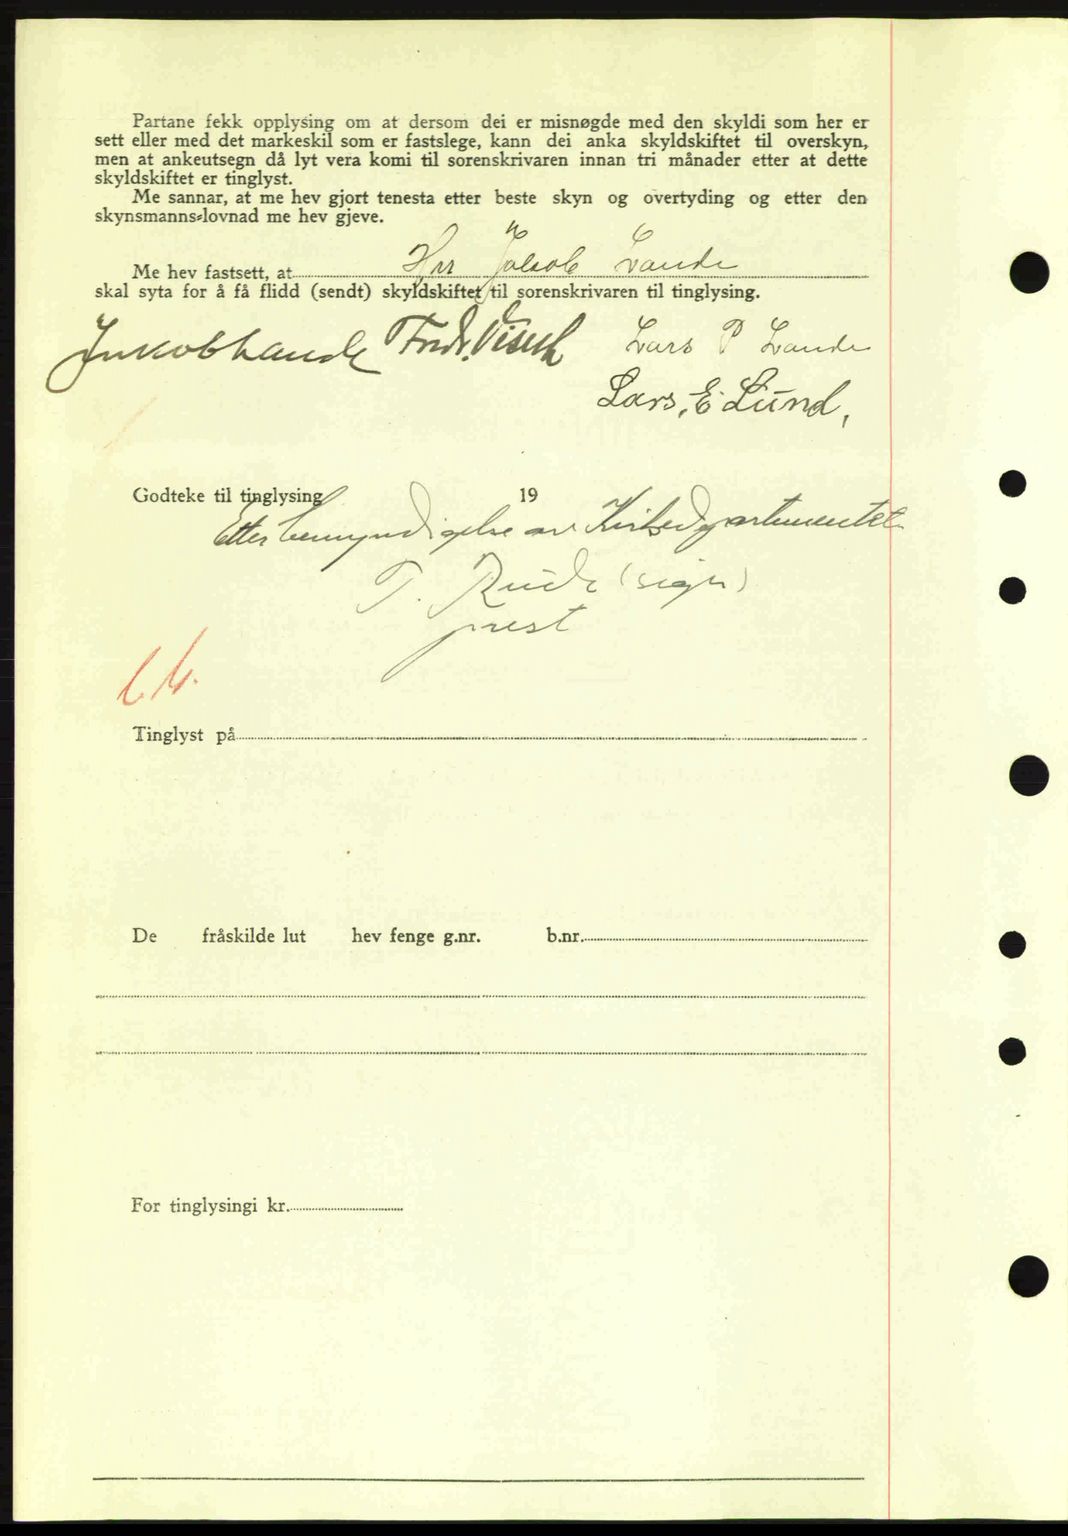 Partane fekk opplysing om at dersom dei er misnøgde med den skyldi som her er
sett eller med det markeskil som er fastslege, kann dei anka skyldskiftet til overskyn,
men at ankeutsegn då lyt vera komi til sorenskrivaren innan tri månader etter at dette
skyldskiftet er tinglyst.
Me sannar, at me hev gjort tenesta etter beste skyn og overtyding og etter den
skynsmanns-lovnad me hev gjeve.
Me hev fastsett, at Hr Jakob Lande
skal syta for å få flidd (sendt) skyldskiftet til sorenskrivaren til tinglysing.
Jakob Lande Fredr. Lars P Lande
Lars, E. Lund,
Godteke til tinglysing 19
Etter bemyndigelse av Kirkedepartementet
T. Ruide (sign)
prest
Tinglyst på
De fråskilde lut hev fenge g.nr. b.nr.
For tinglysingi kr.